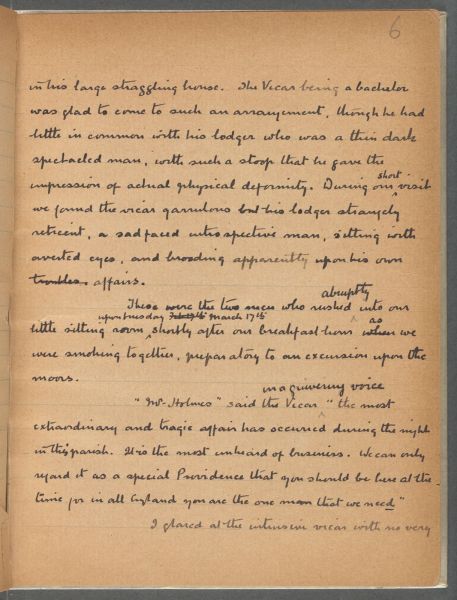 6
in his large straggling house. The Vicar being a bachelor
was glad to come to such an arrangement, though he had
little in common with his lodger who was a thin dark
spectacled man, with such a stoop that he gave the
impression of actual physical deformity. During our short visit
we found the vicar garrulous but his lodger strangely
reticent, a sadfaced introspective man, sitting with
averted eyes, and brooding apparently upon his own
troubles. affairs.
These were the two men who rushed abruptly into our
little sitting room upon tuesday March 17th, shortly after our breakfast hour when as we
were smoking together, preparatory to an excursion upon the
moors.
"Mr Holmes" said the Vicar in a quivering voice "the most
extraordinary and tragic affair has occurred during the night
in this parish. It is the most unheard of business. We can only
regard it as a special Providence that you should be here at the
time for in all England you are the one man that we need"
I glared at the intrusive vicar with no very